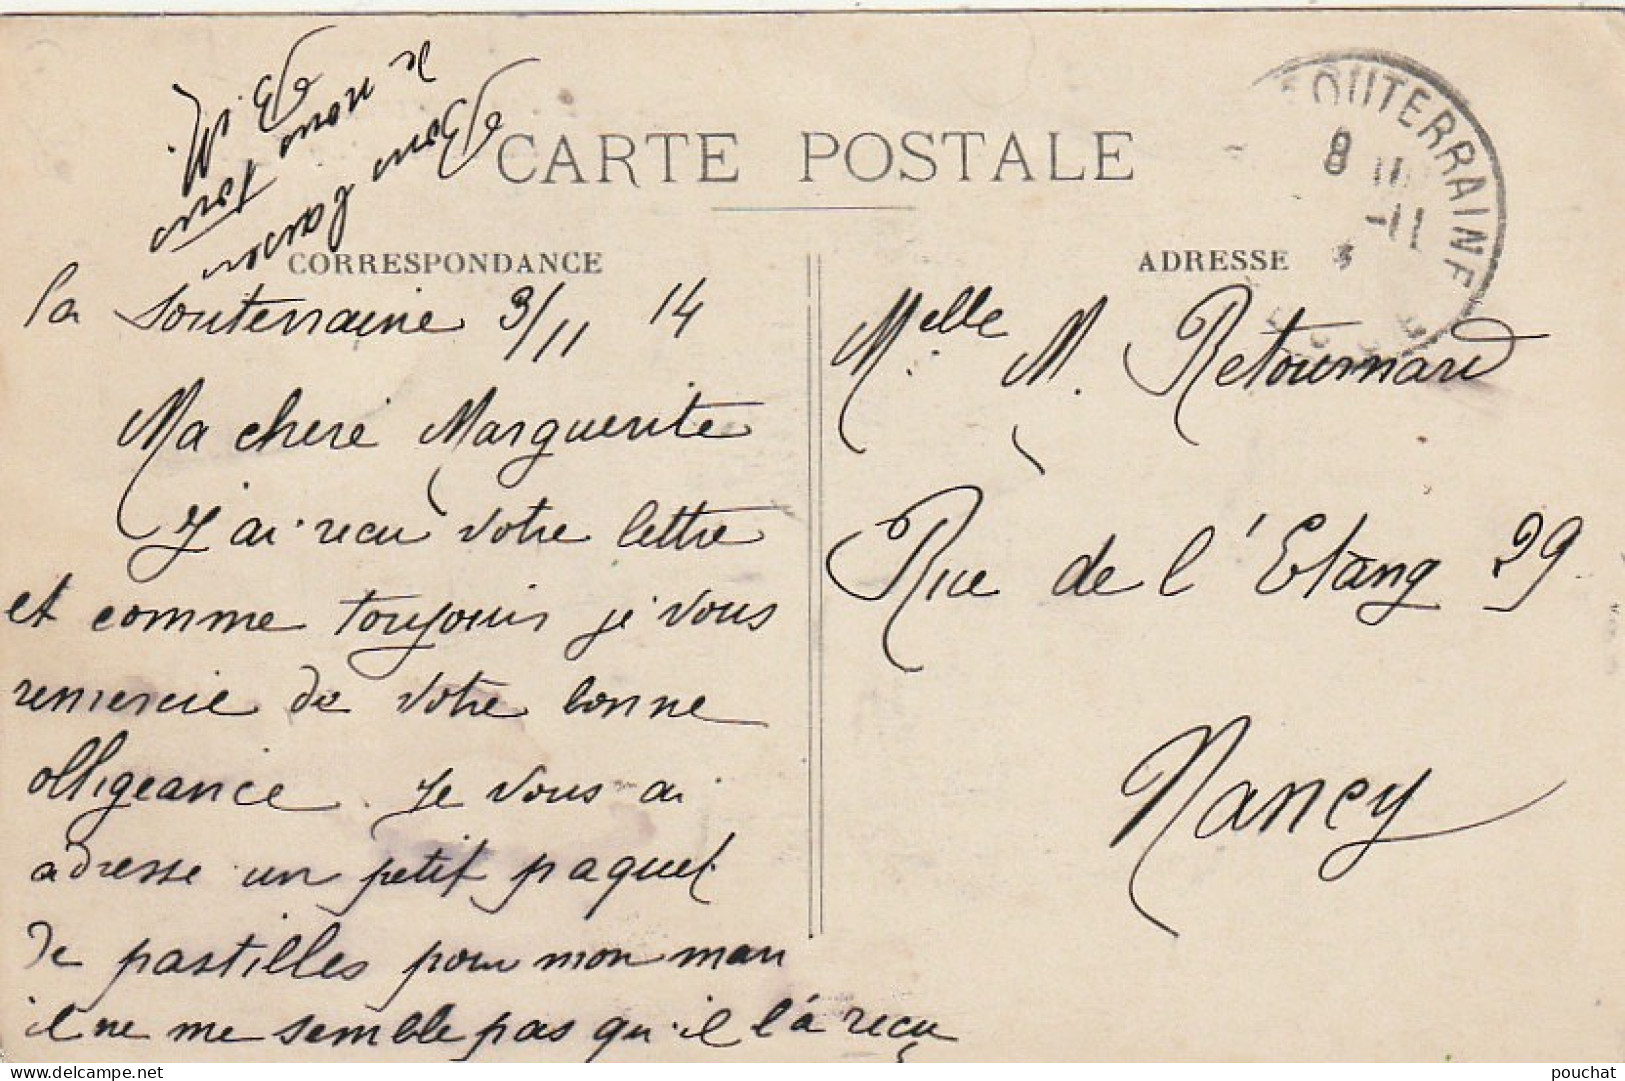 CARTE POSTALE
CORRESPONDANCE
ADRESSE
OUTERRAINE
8
11
la Souterraine 3/11 14
Ma cheré Marguerite
j'ai recu votre lettre
et comme toujours je vous
remercie de votre bonne
obligeance. je vous ai
adresse un petit paquet
de pastilles pour mon mari
il ne me semble pas qu'il l'á reçu
Melle M. Retournard
Rue de l'Etang 29
Nancy
pouchat